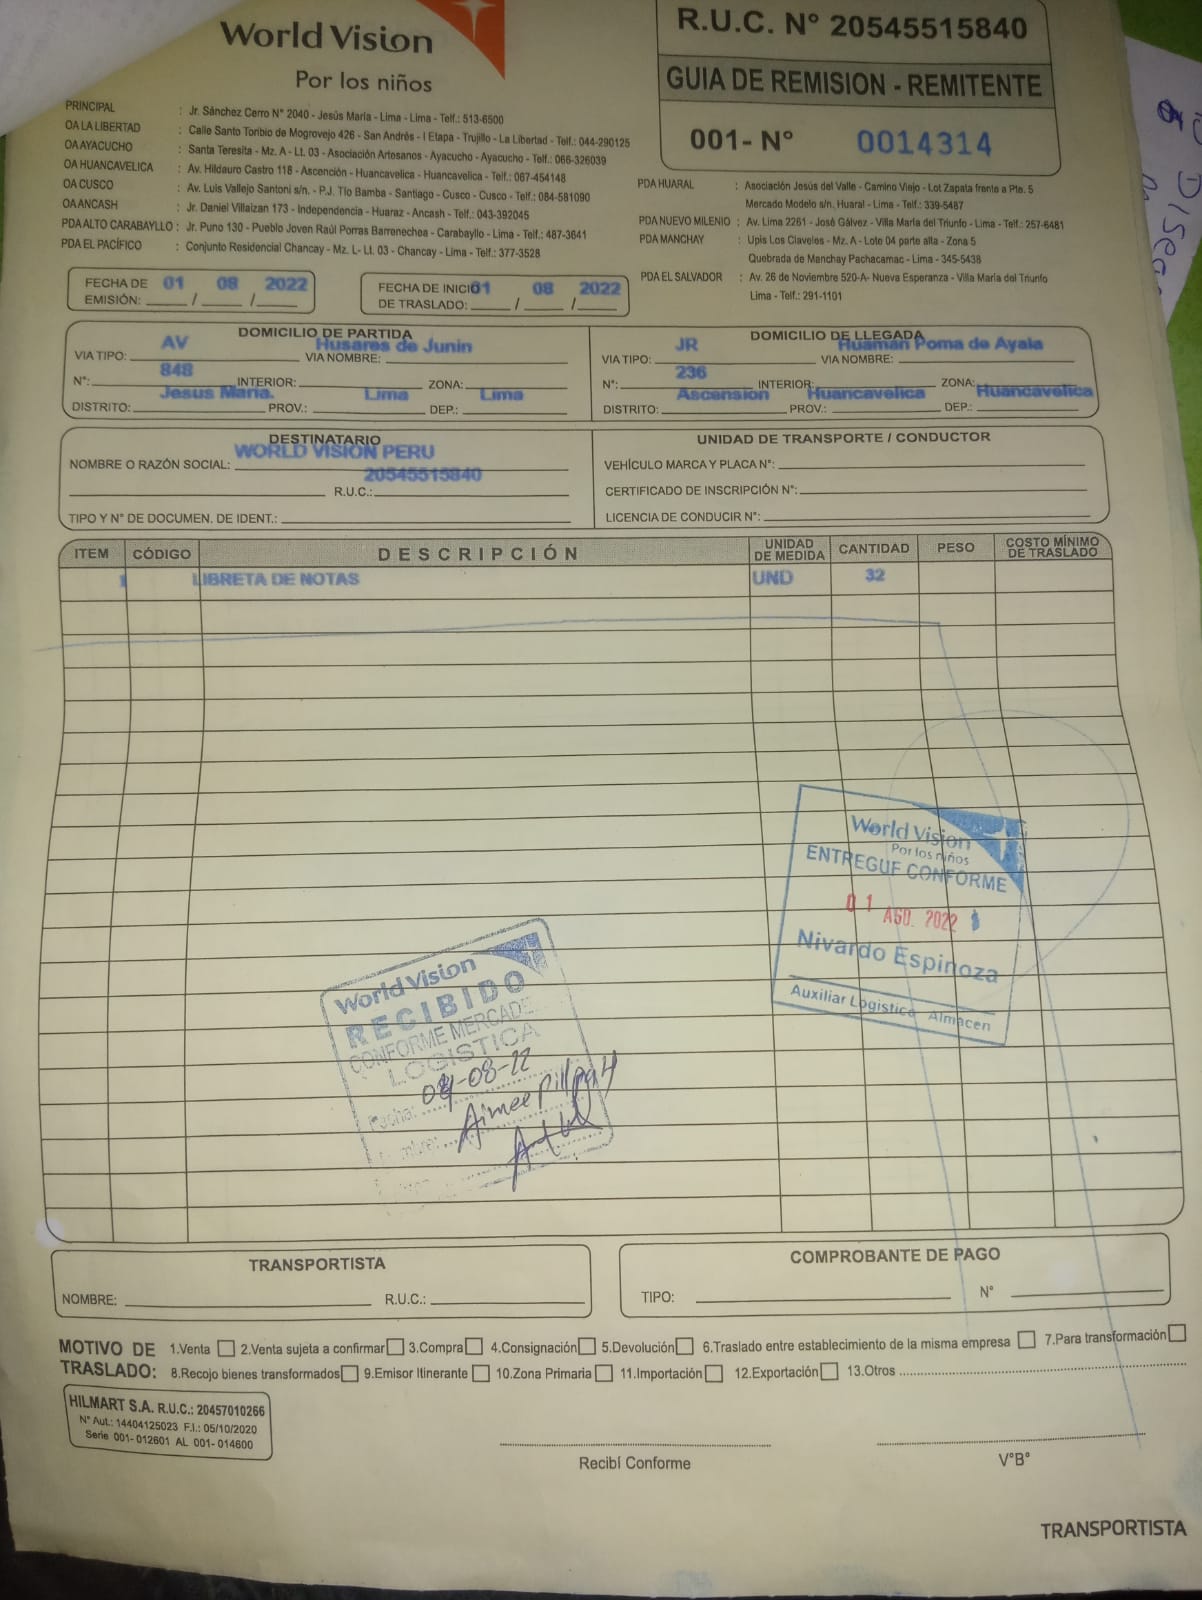 World Vision
Por los niños
R.U.C. N° 20545515840
GUIA DE REMISION - REMITENTE
001- N° 0014314
PRINCIPAL : Jr. Sánchez Cerro N° 2040 - Jesús María - Lima - Lima - Telf.: 513-6500
OA LA LIBERTAD : Calle Santo Toribio de Mogrovejo 426 - San Andrés - I Etapa - Trujillo - La Libertad - Telf.: 044-290125
OA AYACUCHO : Santa Teresita - Mz. A - Lt. 03 - Asociación Artesanos - Ayacucho - Ayacucho - Telf.: 066-326039
OA HUANCAVELICA : Av. Hildauro Castro 118 - Ascención - Huancavelica - Huancavelica - Telf.: 067-454148
OA CUSCO : Av. Luis Vallejo Santoni s/n. - P.J. Tío Bamba - Santiago - Cusco - Cusco - Telf.: 084-581090
OA ANCASH : Jr. Daniel Villaizan 173 - Independencia - Huaraz - Ancash - Telf.: 043-392045
PDA ALTO CARABAYLLO : Jr. Puno 130 - Pueblo Joven Raúl Porras Barrenechea - Carabayllo - Lima - Telf.: 487-3641
PDA EL PACÍFICO : Conjunto Residencial Chancay - Mz. L- Lt. 03 - Chancay - Lima - Telf.: 377-3528
PDA HUARAL : Asociación Jesús del Valle - Camino Viejo - Lot Zapata frente a Pte. 5
Mercado Modelo s/n. Huaral - Lima - Telf.: 339-5487
PDA NUEVO MILENIO : Av. Lima 2261 - José Gálvez - Villa María del Triunfo - Lima - Telf.: 257-6481
PDA MANCHAY : Upis Los Claveles - Mz. A - Lote 04 parte alta - Zona 5
Quebrada de Manchay Pachacamac - Lima - 345-5438
PDA EL SALVADOR : Av. 26 de Noviembre 520-A- Nueva Esperanza - Villa María del Triunfo
Lima - Telf.: 291-1101
FECHA DE EMISIÓN: 01 / 08 / 2022
FECHA DE INICIO DE TRASLADO: 01 / 08 / 2022
DOMICILIO DE PARTIDA
VIA TIPO: AV VIA NOMBRE: Husares de Junin
N°: 848 INTERIOR: ZONA:
DISTRITO: Jesus Maria. PROV.: Lima DEP.: Lima
DOMICILIO DE LLEGADA
VIA TIPO: JR VIA NOMBRE: Huaman Poma de Ayala
N°: 236 INTERIOR: ZONA:
DISTRITO: Ascension PROV.: Huancavelica DEP.: Huancavelica
DESTINATARIO
NOMBRE O RAZÓN SOCIAL: WORLD VISION PERU
R.U.C.: 20545515840
TIPO Y N° DE DOCUMEN. DE IDENT.:
UNIDAD DE TRANSPORTE / CONDUCTOR
VEHÍCULO MARCA Y PLACA N°:
CERTIFICADO DE INSCRIPCIÓN N°:
LICENCIA DE CONDUCIR N°:
ITEM CÓDIGO DESCRIPCIÓN UNIDAD DE MEDIDA CANTIDAD PESO COSTO MÍNIMO DE TRASLADO
1 LIBRETA DE NOTAS UND 32
World Vision
Por los niños
ENTREGUE CONFORME
01 AGO. 2022
Nivardo Espinoza
Auxiliar Logistica Almacen
World Vision
RECIBIDO
CONFORME MERCADE
LOGISTICA
Fecha: 04-08-22
Aimee Pillpa
TRANSPORTISTA
NOMBRE: R.U.C.:
COMPROBANTE DE PAGO
TIPO: N°
MOTIVO DE TRASLADO: 1.Venta 2.Venta sujeta a confirmar 3.Compra 4.Consignación 5.Devolución 6.Traslado entre establecimiento de la misma empresa 7.Para transformación
8.Recojo bienes transformados 9.Emisor Itinerante 10.Zona Primaria 11.Importación 12.Exportación 13.Otros
HILMART S.A. R.U.C.: 20457010266
N° Aut.: 14404125023 F.I.: 05/10/2020
Serie 001- 012601 AL 001- 014600
Recibí Conforme
V°B°
TRANSPORTISTA